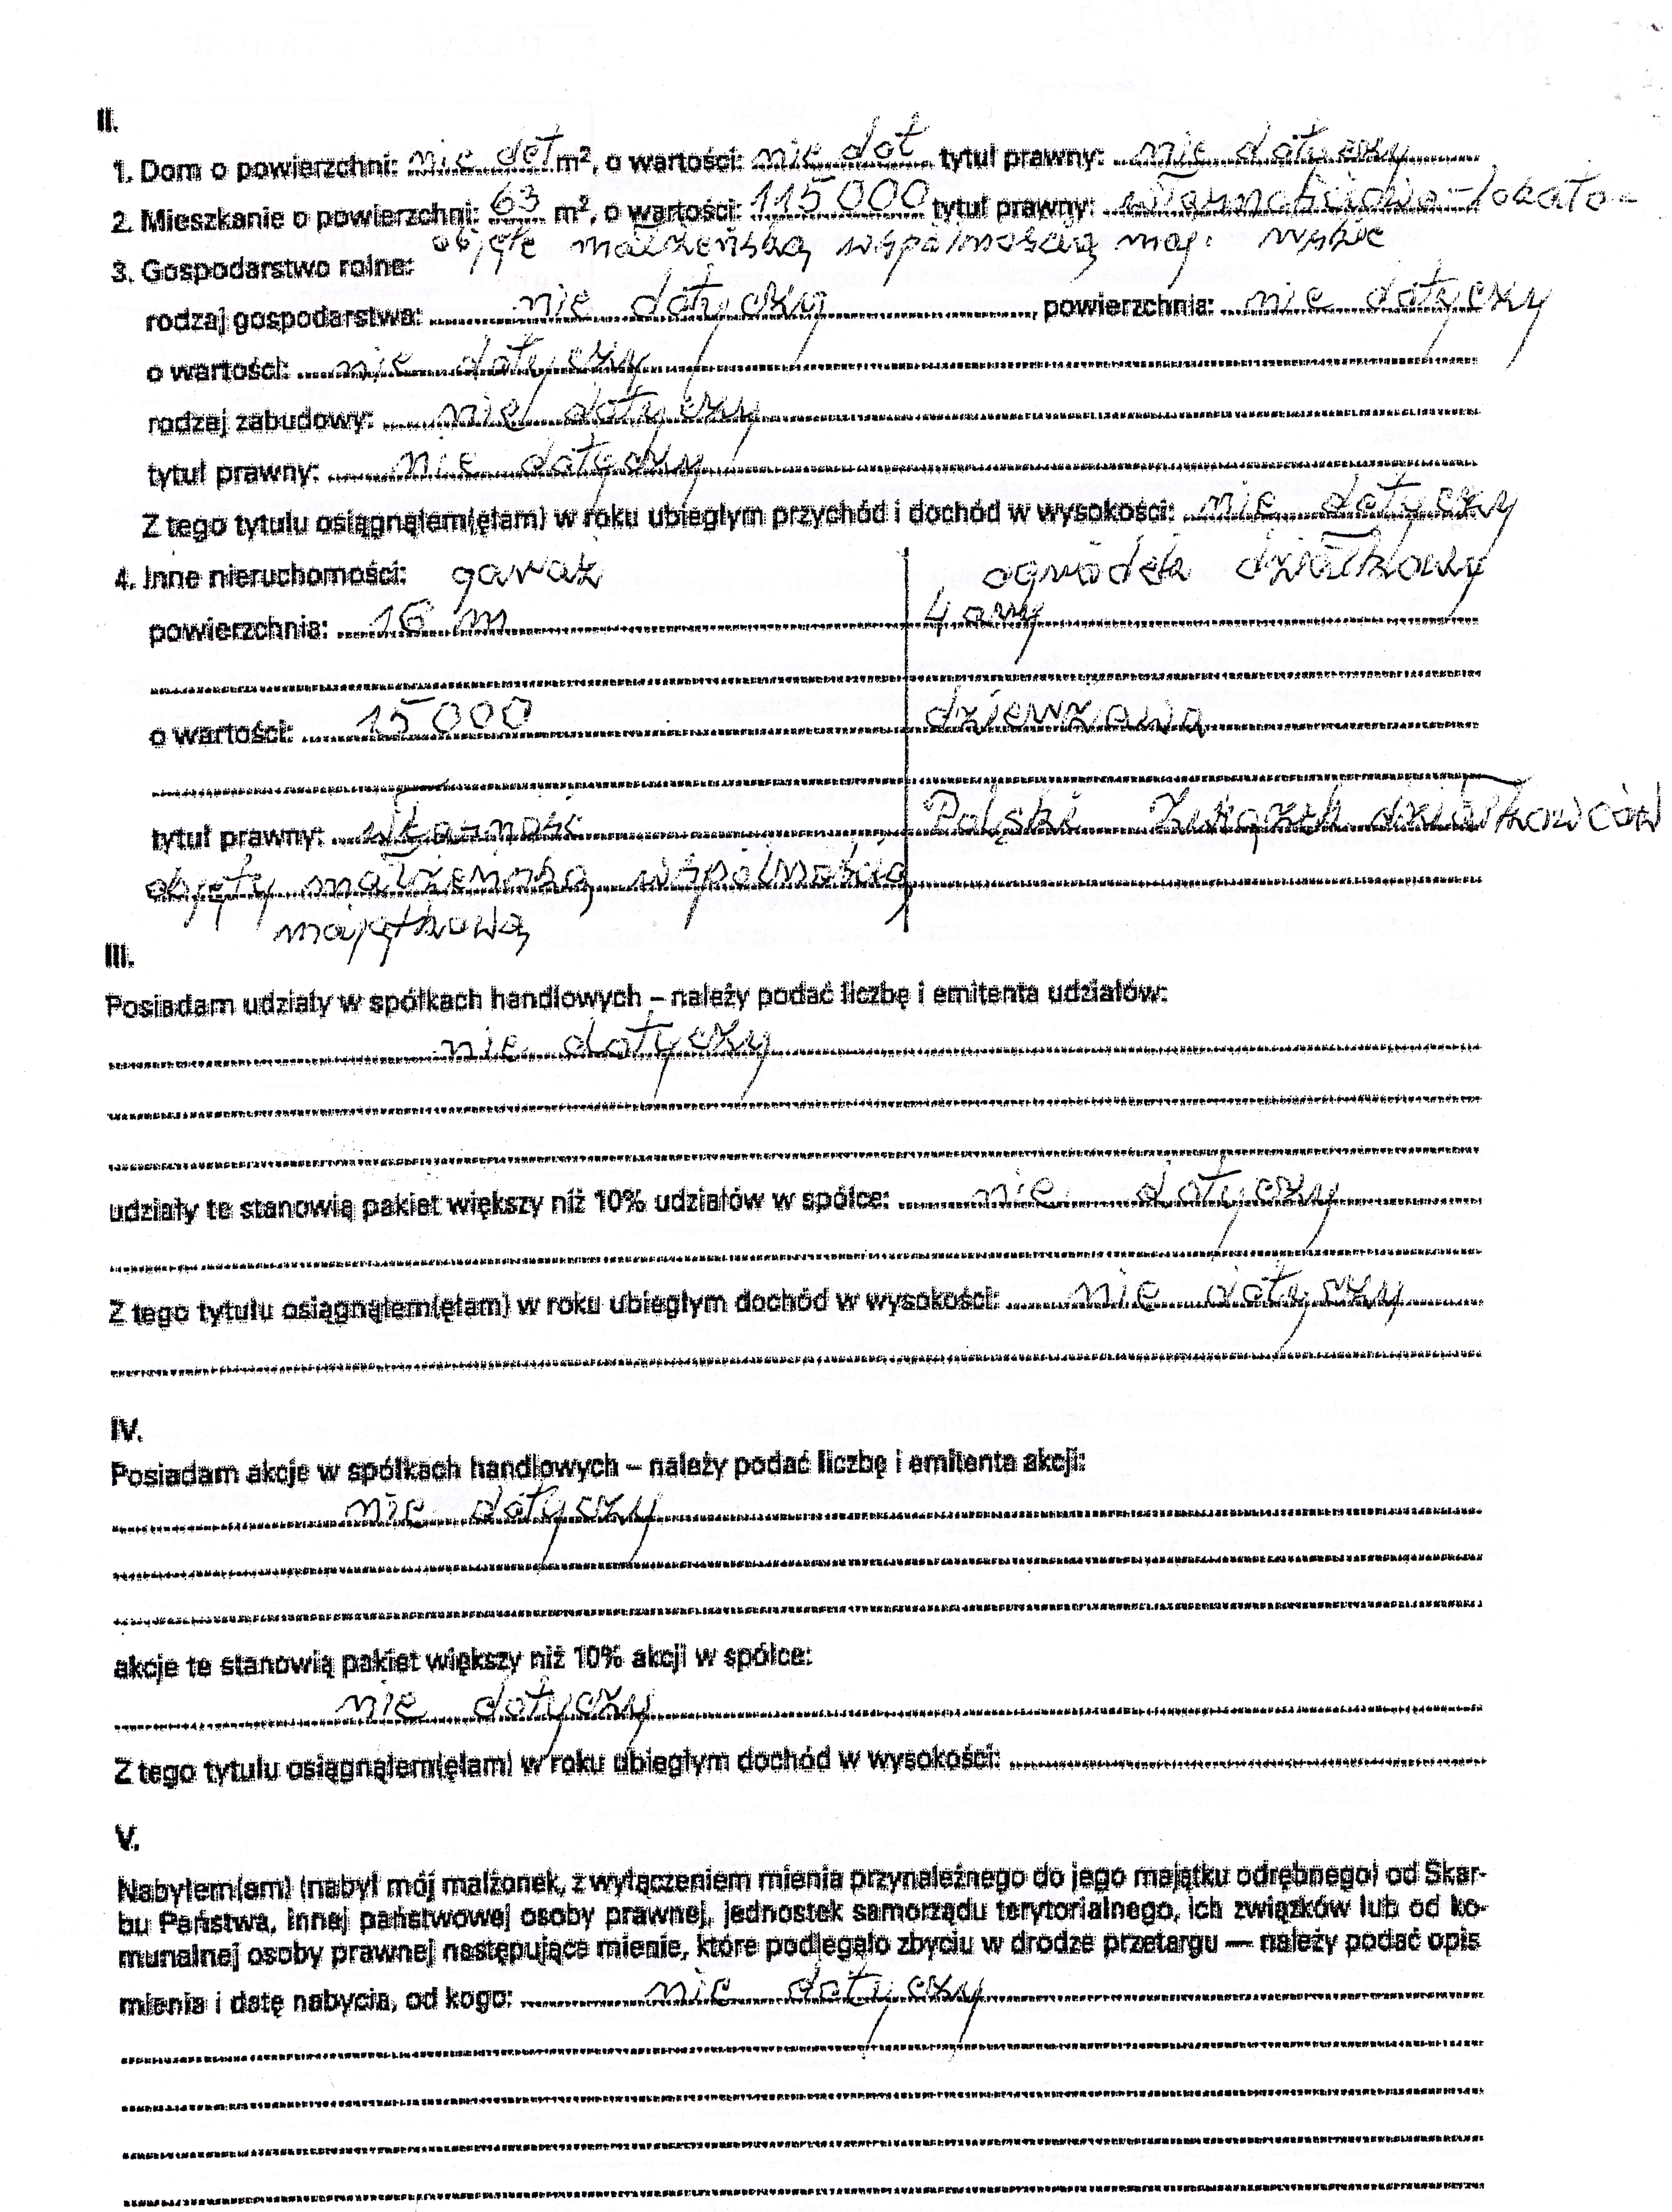 II.
1. Dom o powierzchni: nie dot m², o wartości: nie dot tytuł prawny: nie dotyczy
2. Mieszkanie o powierzchni: 63 m², o wartości: 115 000 tytuł prawny: własnościowo-lokato-
objęte małżeńską wspólnością maj.
3. Gospodarstwo rolne:
rodzaj gospodarstwa: nie dotyczy, powierzchnia: nie dotyczy
o wartości: nie dotyczy
rodzaj zabudowy: nie dotyczy
tytuł prawny: nie dotyczy
Z tego tytułu osiągnąłem(ęłam) w roku ubiegłym przychód i dochód w wysokości: nie dotyczy
4. Inne nieruchomości: garaż ogródek działkowy
powierzchnia: 16 m 4 ary
o wartości: 15 000 dzierżawa
tytuł prawny: własność Polski Związek działkowców
objęty małżeńską wspólnością
majątkową
III.
Posiadam udziały w spółkach handlowych – należy podać liczbę i emitenta udziałów:
nie dotyczy
udziały te stanowią pakiet większy niż 10% udziałów w spółce: nie dotyczy
Z tego tytułu osiągnąłem(ęłam) w roku ubiegłym dochód w wysokości: nie dotyczy
IV.
Posiadam akcje w spółkach handlowych – należy podać liczbę i emitenta akcji:
nie dotyczy
akcje te stanowią pakiet większy niż 10% akcji w spółce:
nie dotyczy
Z tego tytułu osiągnąłem(ęłam) w roku ubiegłym dochód w wysokości:
V.
Nabyłem(am) (nabył mój małżonek, z wyłączeniem mienia przynależnego do jego majątku odrębnego) od Skar-
bu Państwa, innej państwowej osoby prawnej, jednostek samorządu terytorialnego, ich związków lub od ko-
munalnej osoby prawnej następujące mienie, które podlegało zbyciu w drodze przetargu — należy podać opis
mienia i datę nabycia, od kogo: nie dotyczy